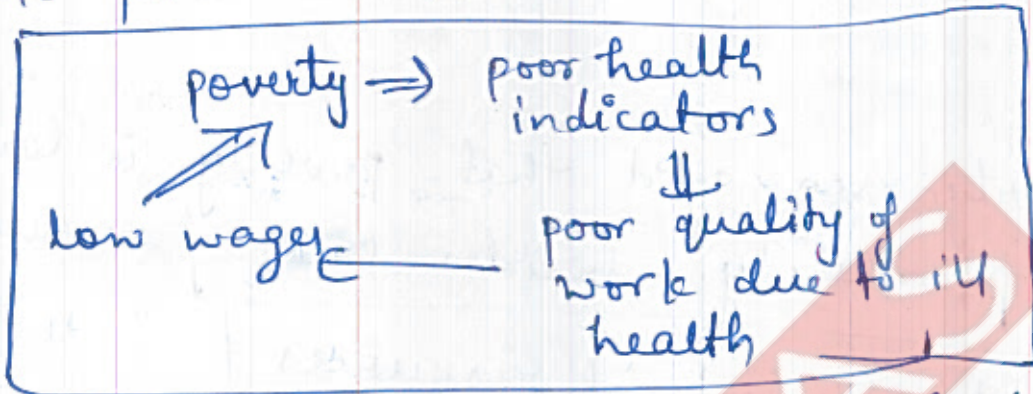 poverty ⇒ poor health
indicators
⇓
low wages ← poor quality of
work due to ill
health